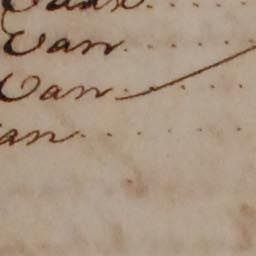 Van . . . . .
Van . . . .
an . . . . .